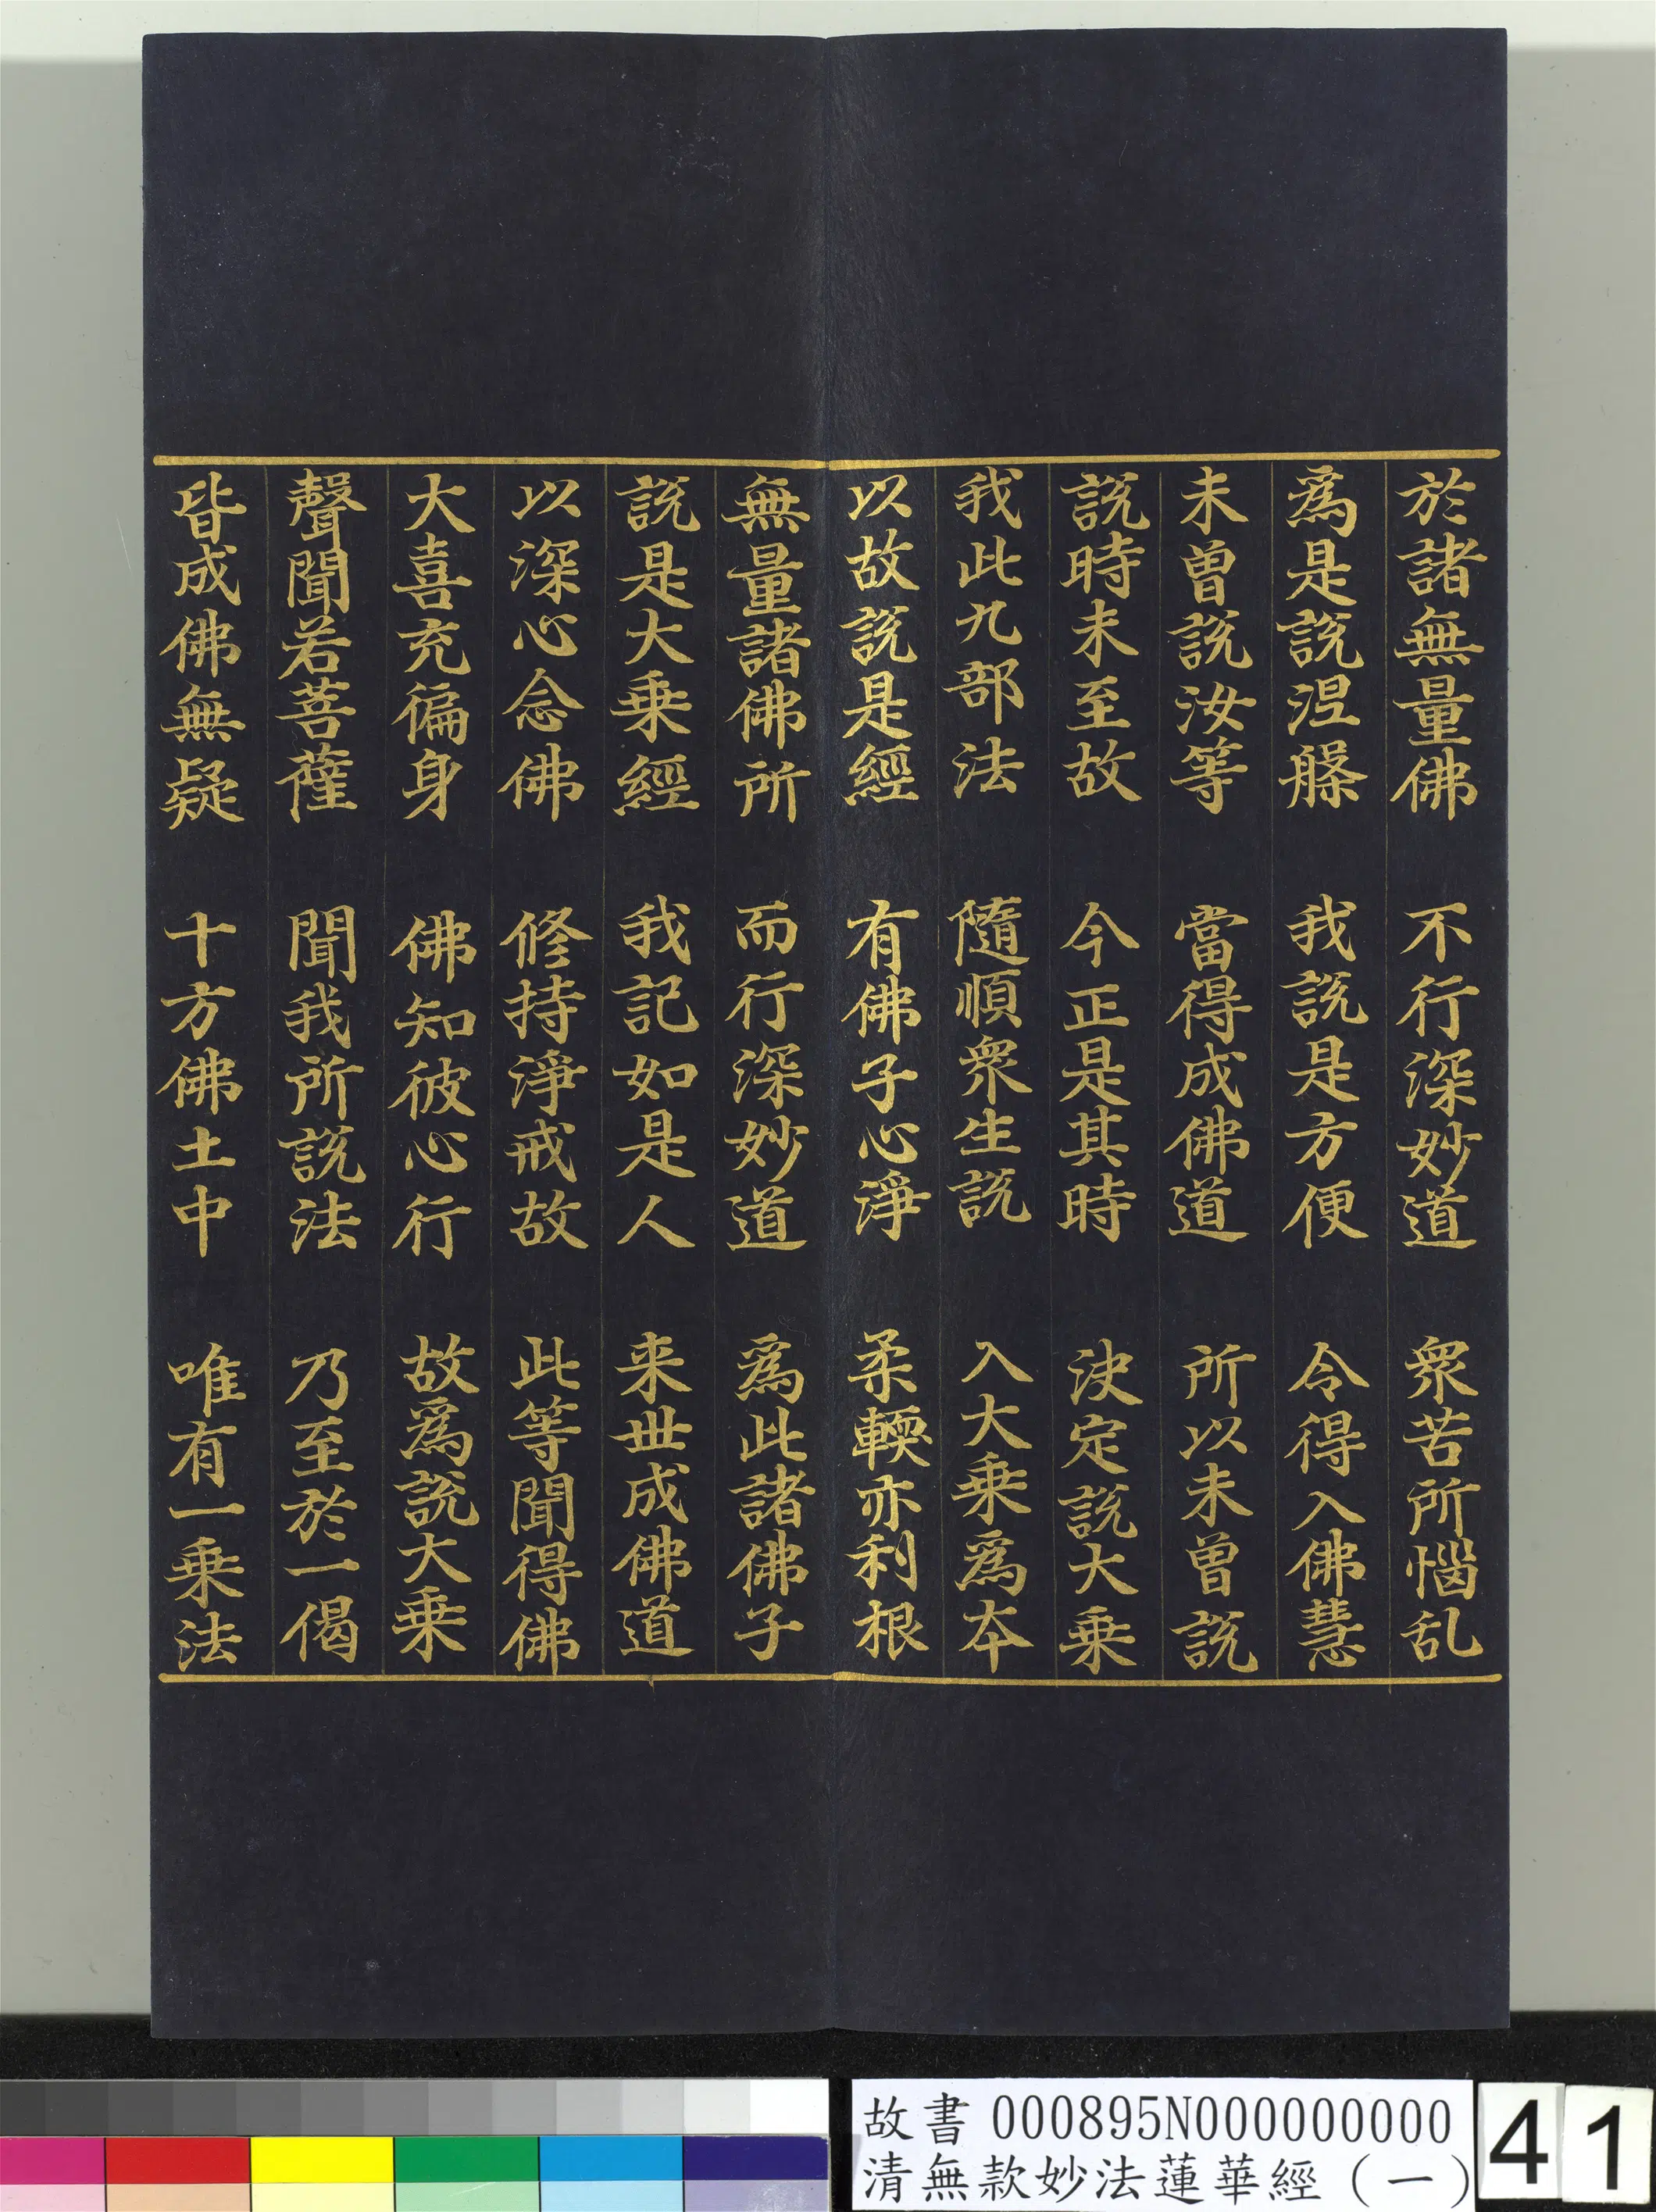 於諸無量佛　不行深妙道　衆苦所惱乱
爲是說涅槃　我說是方便　令得入佛慧
未曾說汝等　當得成佛道　所以未曾說
說時未至故　今正是其時　決定說大乗
我此九部法　隨順衆生說　入大乗爲本
以故說是經　有佛子心淨　柔輭亦利根
無量諸佛所　而行深妙道　爲此諸佛子
說是大乗經　我記如是人　来世成佛道
以深心念佛　修持淨戒故　此等聞得佛
大喜充徧身　佛知彼心行　故爲說大乗
聲聞若菩薩　聞我所說法　乃至於一偈
皆成佛無疑　十方佛土中　唯有一乗法
故書 000895N000000000
清無款妙法蓮華經（一）
41